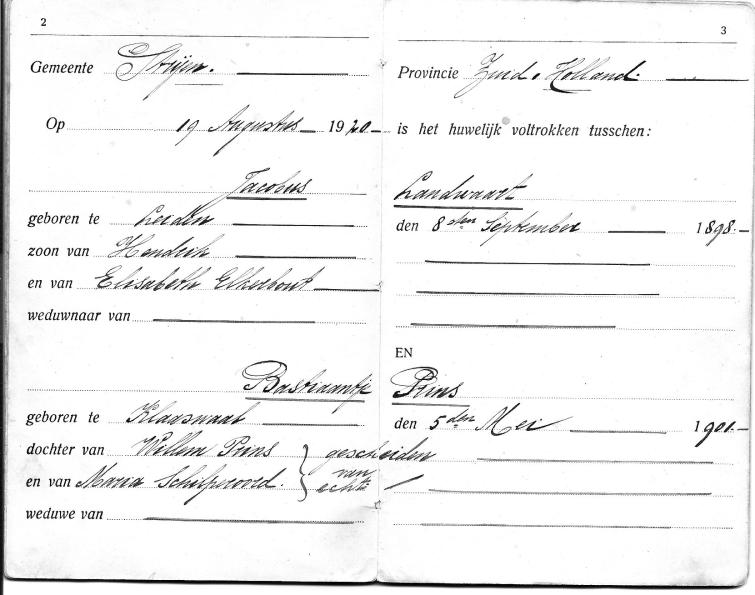 2
Gemeente Strijen.
Op 19 Augustus 1920
geboren te Leiden
zoon van Hendrik
en van Elisabeth Elkerbout
weduwnaar van
Jacobus
Bastiaantje
geboren te Klaaswaal
dochter van Willem Prins } gescheiden
en van Maria Schilperoord. } van echt:
weduwe van
3
Provincie Zuid-Holland.
is het huwelijk voltrokken tusschen:
Landwaart
den 8sten September 1898.
EN
Prins
den 5den Mei 1901.